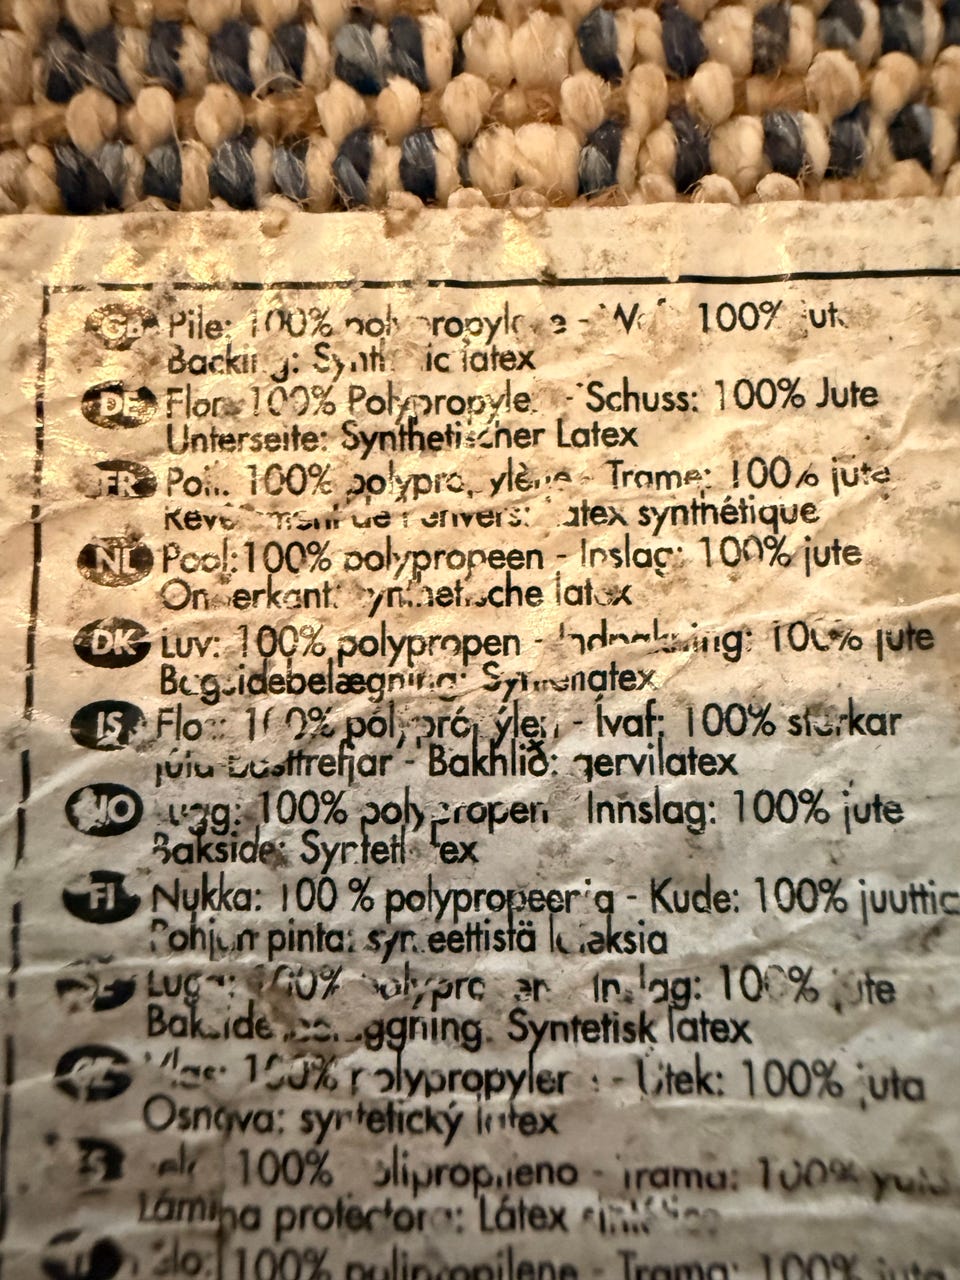 GB Pile: 100% polypropylene - Weft: 100% jute
Backing: Synthetic latex
DE Flor: 100% Polypropylen - Schuss: 100% Jute
Unterseite: Synthetischer Latex
FR Poil: 100% polypropylène - Trame: 100% jute
Revêtement de l'envers: latex synthétique
NL Pool: 100% polypropeen - Inslag: 100% jute
Onderkant: synthetische latex
DK Luv: 100% polypropen - 100% jute
Bagsidebelægning: Syntenlatex
IS Flos: 100% pólýprópýlen - Ívaf: 100% sterkar
júta basttrefjar - Bakhlið: gervilatex
NO Lugg: 100% polypropen Innslag: 100% jute
Bakside: latex
FI Nukka: 100 % polypropeenia - Kude: 100%
Pohjan pinta: synteettistä lateksia
SE Lugg: 100% polypropen Inslag: 100% jute
Baksidebeläggning. Syntetisk latex
Vlas: 100% polypropylen - Útek: 100% juta
Osnova: syntetický latex
100% polipropileno - Trama: 100% yute
Lámina protectora: Látex sintético
100% polipropilene - Trama: 100%